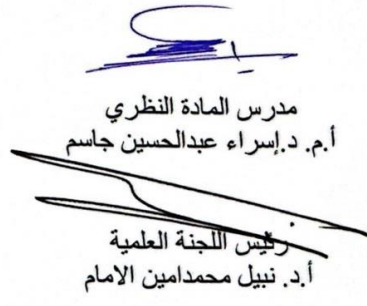 مدرس المادة النظري
أ.م. د.إسراء عبدالحسين جاسم
رئيس اللجنة العلمية
أ.د. نبيل محمدامين الامام